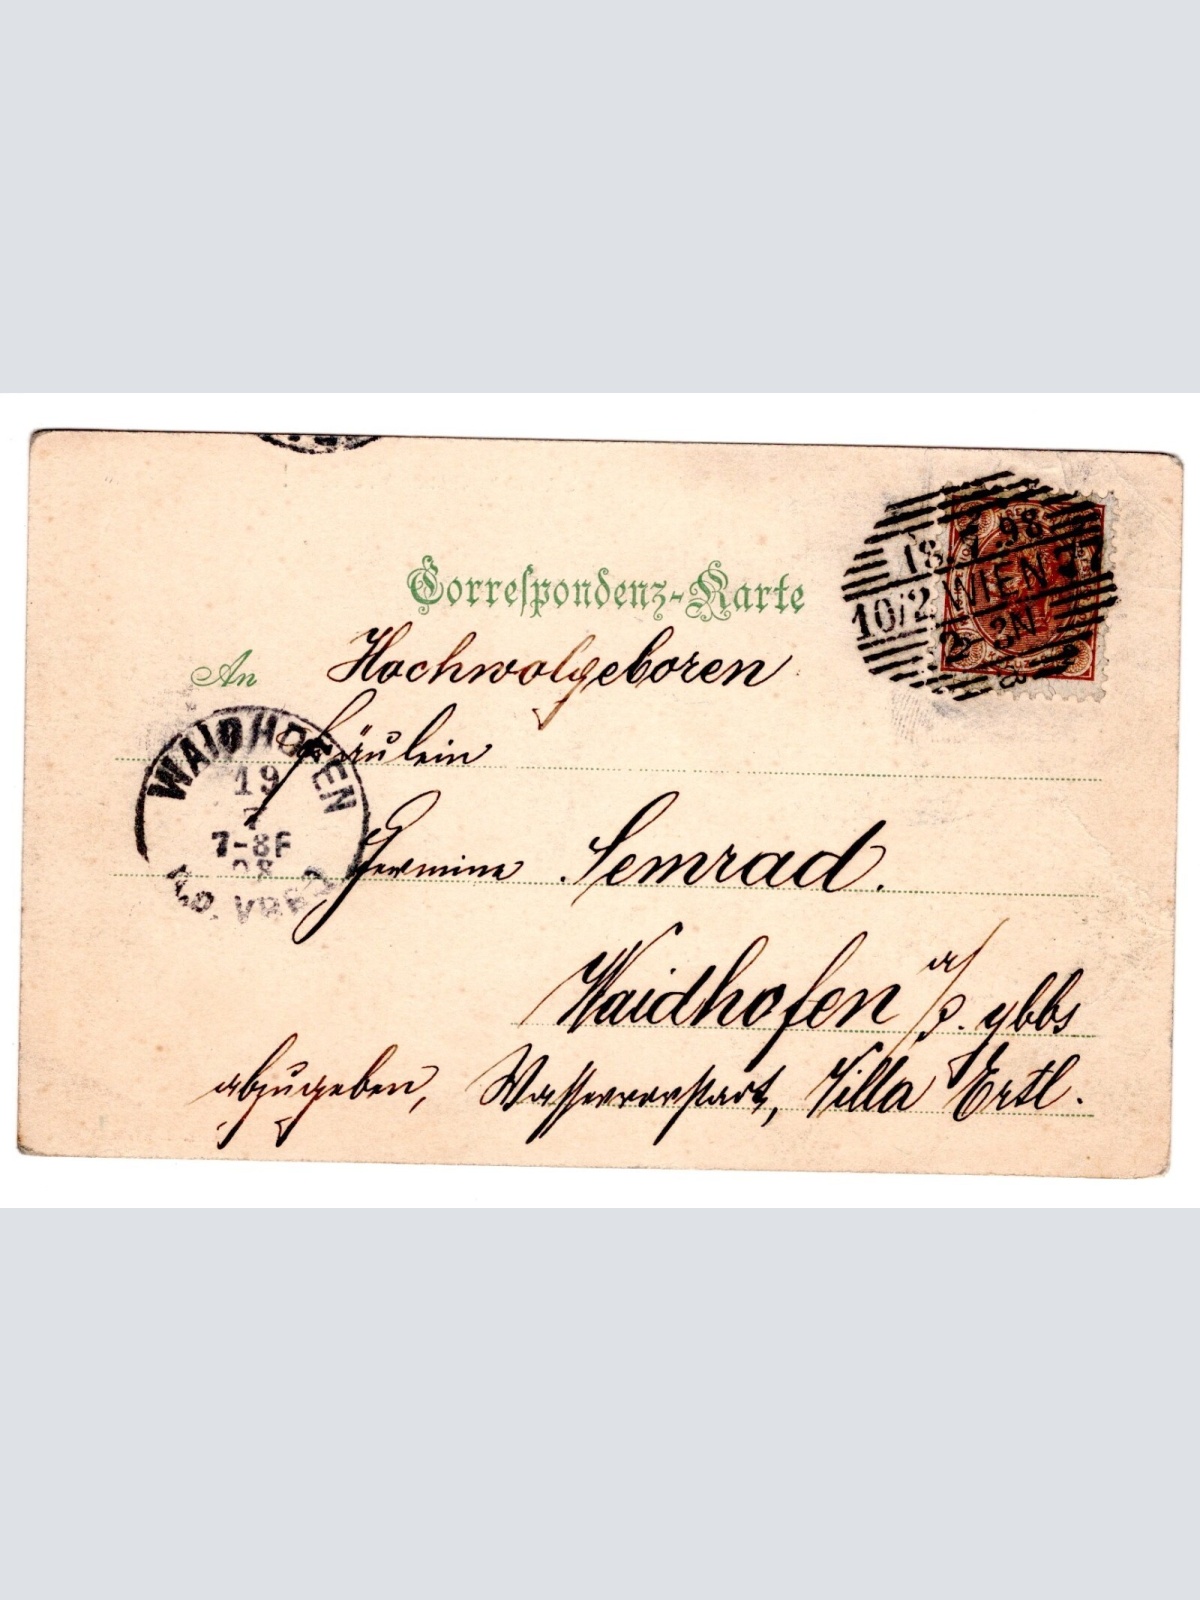 Correspondenz-Karte
18.7.98
10/2 WIEN 7
2 3N
An Hochwolgeboren
Fräulein
WAIDHOFEN
19
7
7-8F
98
a.d. YBBS
Hermine Semrad.
Waidhofen a/d. ybbs
abzugeben, Wasservorstadt, Villa Ertl.